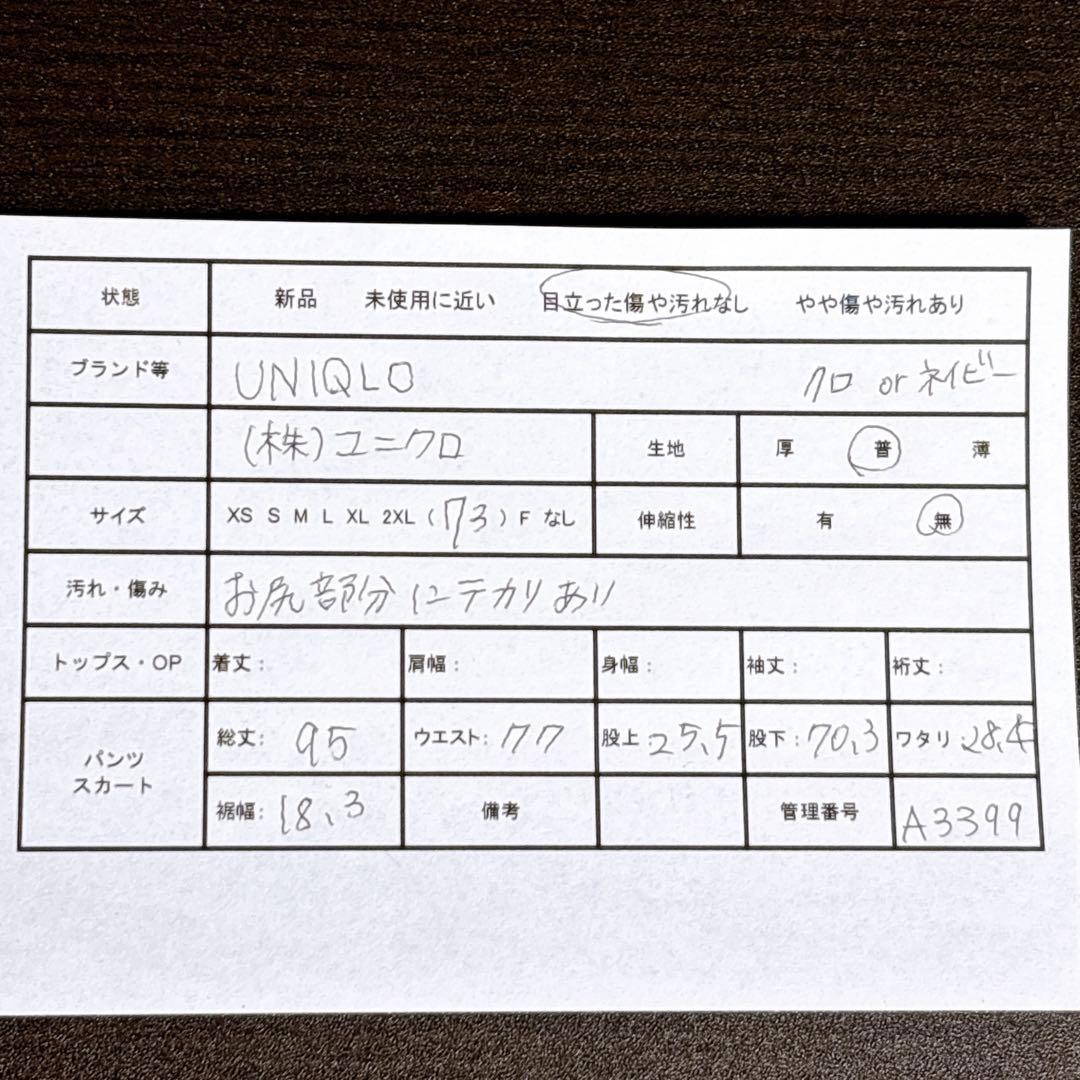 状態 新品 未使用に近い 目立った傷や汚れなし やや傷や汚れあり
ブランド等 UNIQLO クロ or ネイビー
(株)ユニクロ 生地 厚 普 薄
サイズ XS S M L XL 2XL (73) F なし 伸縮性 有 無
汚れ・傷み お尻部分にテカリあり
トップス・OP 着丈: 肩幅: 身幅: 袖丈: 裄丈:
パンツ スカート 総丈: 95 ウエスト: 77 股上 25.5 股下: 70.3 ワタリ: 28.4
裾幅: 18.3 備考 管理番号 A3399